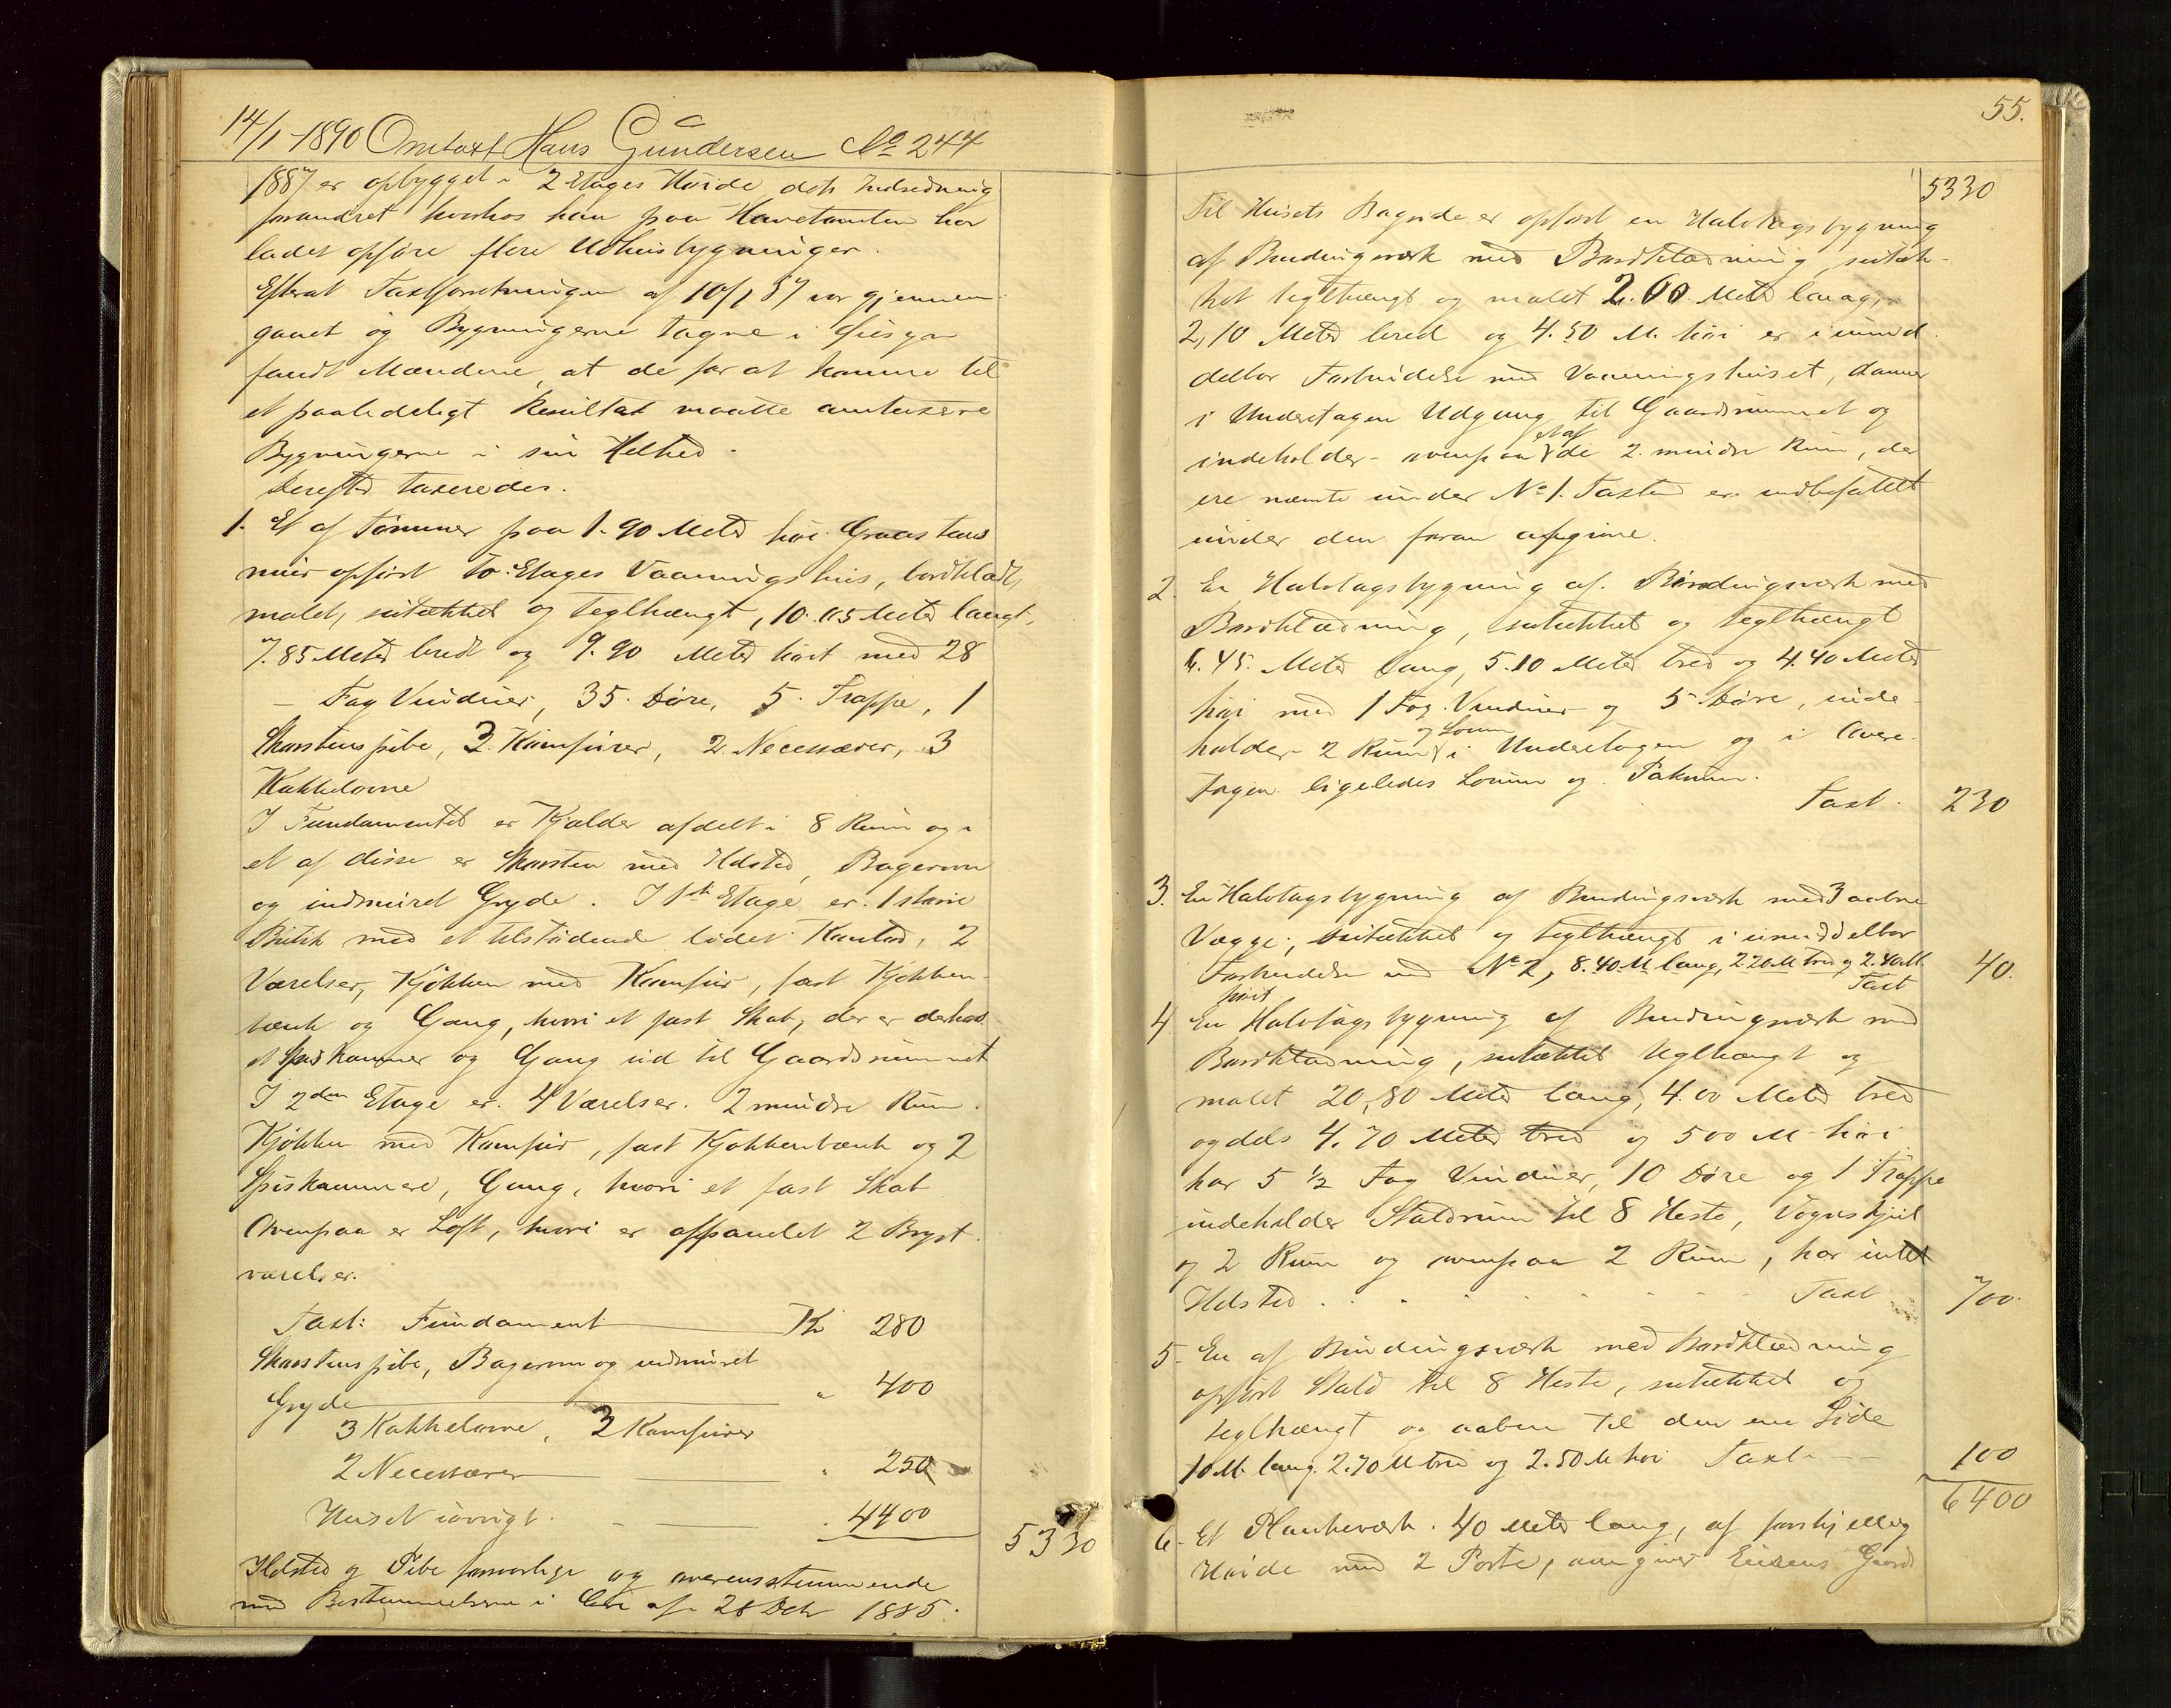 14/1 1890 Omtaxt Hans Gundersen No 244
1887 er opbygget i 2 Etages Høide dets Indredning
forandret hvorhos han paa Havetomten har
ladet opføre flere Udhusbygninger.
Efterat Taxtforretningen af 10/1 87 var gjennem-
gaaet og Bygningerne tagne i Øiesyn
fandt Mændene, at de for at komme til
et paalideligt Resultat maatte omtaxere
Bygningerne i sin Helhed.
Derefter taxeredes.
1. Et af Tømmer paa 1.90 Meter høi Graastens
muur opført to Etages Vaaningshus, bordklædt,
malet, sutækket og teglhængt, 10.05 Meter langt,
7.85 Meter bredt og 9.90 Meter høit med 28
Fag Vinduer, 35 Døre, 5 Trappe, 1
Skorstenspibe, 2 Komfurer, 2 Necessærer, 3
Kakkelovne
I Fundamentet er Kjælder afdelt i 8 Rum og i
et af disse er Skorsten med Ildsted, Bagerovn
og indmuret Gryde. I 1ste Etage er 1 større
Butik med et tilstødende lidet Kontor, 2
Værelser, Kjøkken med Komfur, fast Kjøkken-
bænk og Gang, hvori et fast Skab, der er derhos
et Spiskammer og Gang ud til Gaardsrummet
I 2den Etage er 4 Værelser. 2 mindre Rum.
Kjøkken med Komfur, fast Kjøkkenbænk og 2
Spiskammere, Gang, hvori et fast Skab
Ovenpaa er Loft, hvori er afpanelet 2 Bryst-
værelser.
Taxt: Fundament Kr 280
Skorstenspibe, Bagerovn og indmuret
Gryde " 400
3 Kakkelovne, 2 Komfurer
2 Necessærer " 250
Huset iøvrigt " 4400
5330
Ildsted og Pibe forsvarlige og overensstemmende
med Bestemmelserne i Lov af 28 Dcb 1885.
55.
5330
Til Husets Bagside er opført en Halvtagsbygning
af Bindingsværk med Bordklædning sutæk-
ket teglhængt og malet 2.00 Meter lang,
2,10 Meter bred og 4.50 M. høi er i umid-
delbar Forbindelse med Vaaningshuset, danner
i Underetagen Udgang til Gaardsrummet og
indeholder ovenpaa et af de 2 mindre Rum, der
ere nævnte under No 1. Taxten er indbefattet
under den foran afgivne.
2. En Halvtagsbygning af Bindingsværk med
Bordklædning, sutækket og teglhængt
6.45 Meter lang, 5.10 Meter bred og 4.40 Meter
høi med 1 Fag Vinduer og 5 Døre, inde-
holder 2 Rum og Loum i Underetagen og i Overe-
tagen ligeledes Loum og Pakrum.
Taxt 230
3. En Halvtagsbygning af Bindingsværk med 3 aabne
Vægge, sutækket og teglhængt i umiddelbar
Forbindelse med No 2, 8.40 M lang, 2.20 M bred og 2.40 M.
høit Taxt 40.
4 En Halvtagsbygning af Bindingsværk med
Bordklædning, sutækket teglhængt og
malet 20,80 Meter lang, 4.00 Meter bred
og dels 4.70 Meter bred og 5 00 M høi
har 5 1/2 Fag Vinduer, 10 Døre og 1 Trappe
indeholder Staldrum til 8 Heste, Vognskjul
og 2 Rum og ovenpaa 2 Rum, har intet
Ildsted . . . . . . . Taxt 700
5. En af Bindingsværk med Bordklædning
opført Stald til 8 Heste, sutækket og
teglhængt og aaben til den ene Side
10 M. lang. 2.70 M bred og 2.50 M høi Taxt 100
6400
6. Et Plankeværk. 40 Meter lang, af forskjellig
Høide med 2 Porte, omgiver Eierens Gaards